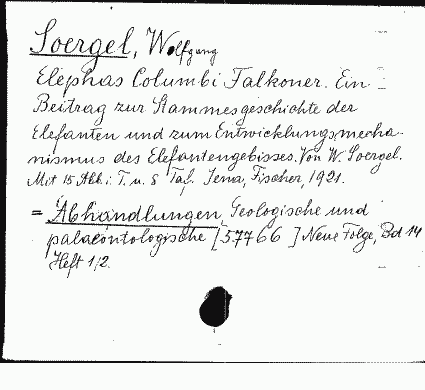 Soergel, Wolfgang
Elephas Columbi Falkoner. Ein
Beitrag zur Stammesgeschichte der
Elefanten und zum Entwicklungsmecha-
nismus des Elefantengebisses. Von W. Soergel.
Mit 15 Abb. i. T. u. 8 Taf. Jena, Fischer, 1921.
= Abhandlungen, Geologische und
palaeontologische [57766] Neue Folge, Bd 14
Heft 1/2.